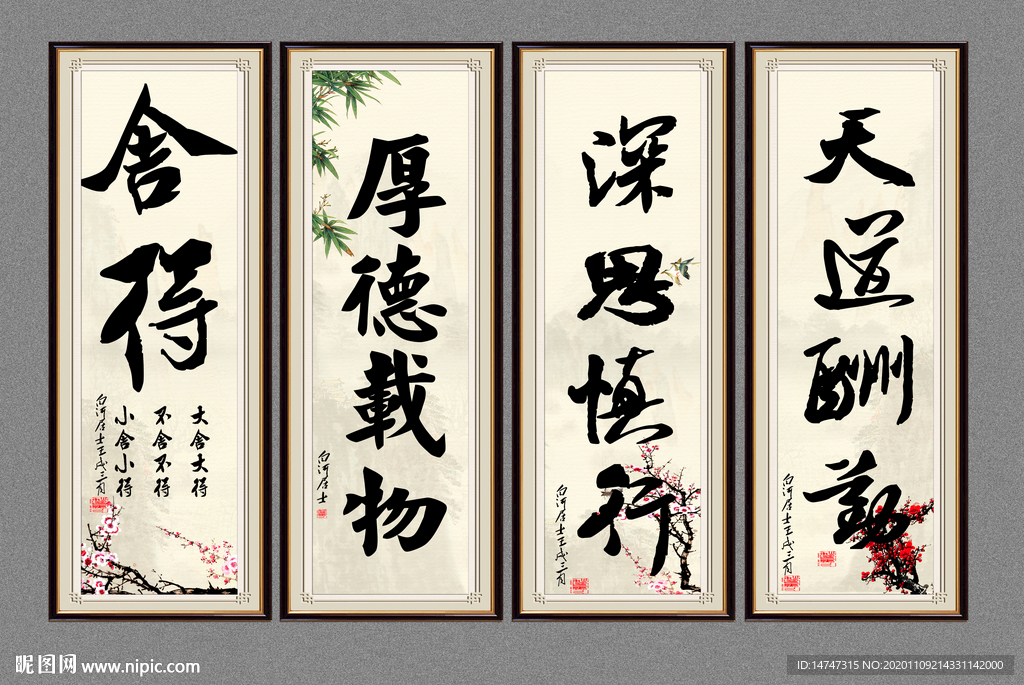 舍得
大舍大得
不舍不得
小舍小得
白河居士壬戌三月
厚德载物
白河居士
深思慎行
白河居士壬戌三月
天道酬勤
白河居士壬戌三月
昵图网 www.nipic.com
ID:14747315 NO:20201109214331142000